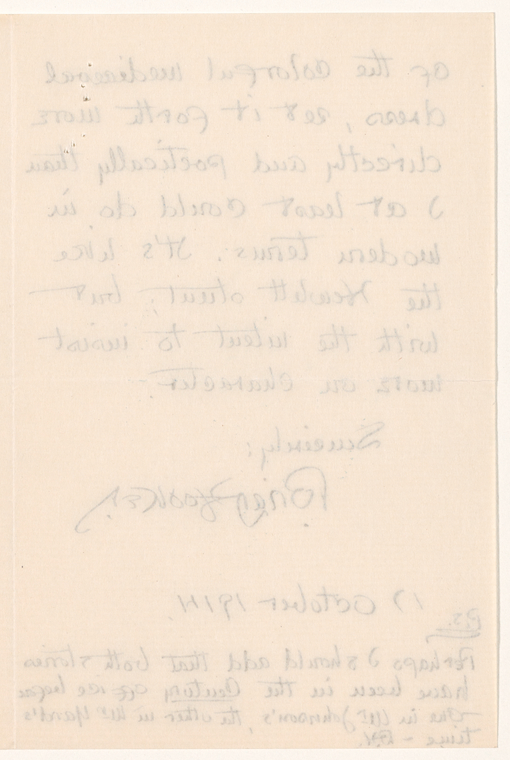 of the colorful mediaeval
dress, set it forth more
directly and poetically than
I at least could do in
modern terms. It's like
the Hewlett stunt, but
with the intent to insist
more on character.
Sincerely,
Brian Hooker.
17 October 1914.
P.S.
Perhaps I should add that both stories
have been in the Century office before
One in Mr Johnson's, the other in Mr Yard's
time – B.H.